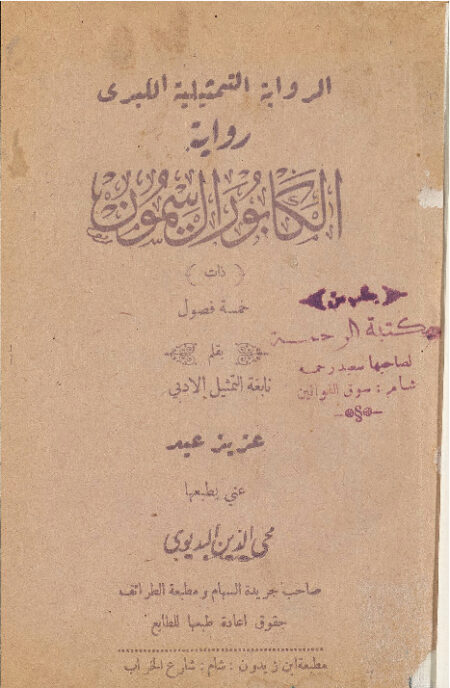 الرواية التمثيلية الكبرى
رواية
الكابورال سيمون
( ذات )
خمسة فصول
بقلم
نابغة التمثيل الادبي
عزيز عيد
عني بطبعها
محي الدين البديوي
صاحب جريدة السهام ومطبعة الطرائف
حقوق اعادة طبعها للطابع
مطبعة ابن زيدون : شام : شارع الخراب
يطلب من
مكتبة الرحمة
لصاحبها سعد رحمه
شام : سوق القوافين